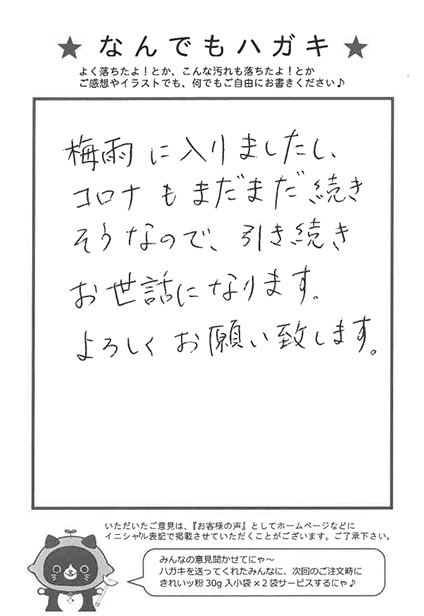 ★なんでもハガキ★
よく落ちたよ！とか、こんな汚れも落ちたよ！とか
ご感想やイラストでも、何でもご自由にお書きください♪
梅雨に入りましたし、
コロナもまだまだ続き
そうなので、引き続き
お世話になります。
よろしくお願い致します。
いただいたご意見は、『お客様の声』としてホームページなどに
イニシャル表記で掲載させていただくことがございます。ご了承下さい。
みんなの意見聞かせてにゃ～
ハガキを送ってくれたみんなに、次回のご注文時に
きれいッ粉30g入小袋×2袋サービスするにゃ♪